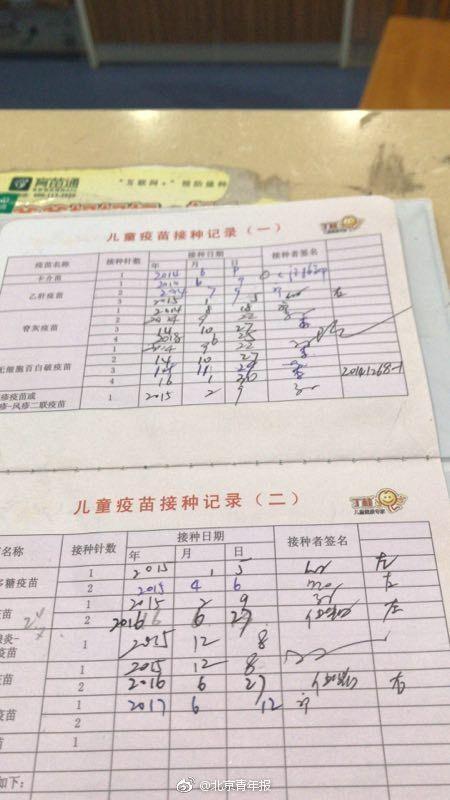 育苗通
"互联网+"预防接种
儿童疫苗接种记录（一）
丁桂
疫苗名称 接种针数 接种日期 接种者签名
年 月 日
卡介苗 1 2014 6 9
乙肝疫苗 1 2014 6 9
2 2014 7 9
3 2015 1 5 左
脊灰疫苗 1 2014 8 18
2 2014 9 22
3 14 10 27
4 2018 6 25
无细胞百白破疫苗 1 2014 9 22
2 14 10 27
3 14 11 29
4 16 1 20 20141268-1
疹疫苗或
-风疹二联疫苗 1 2015 2 9
儿童疫苗接种记录（二）
丁桂
儿童健康专家
名称 接种针数 接种日期 接种者签名
年 月 日
多糖疫苗 1 2015 1 5 左
2 2015 4 6 左
苗 1 2015 2 9 左
2 2016 6 27
腺炎-
疫苗 1 2015 12 8
疫苗 1 2015 12 8
2 2016 6 27 左
疫苗 1 2017 6 12
2
苗 1
如下：
@北京青年报